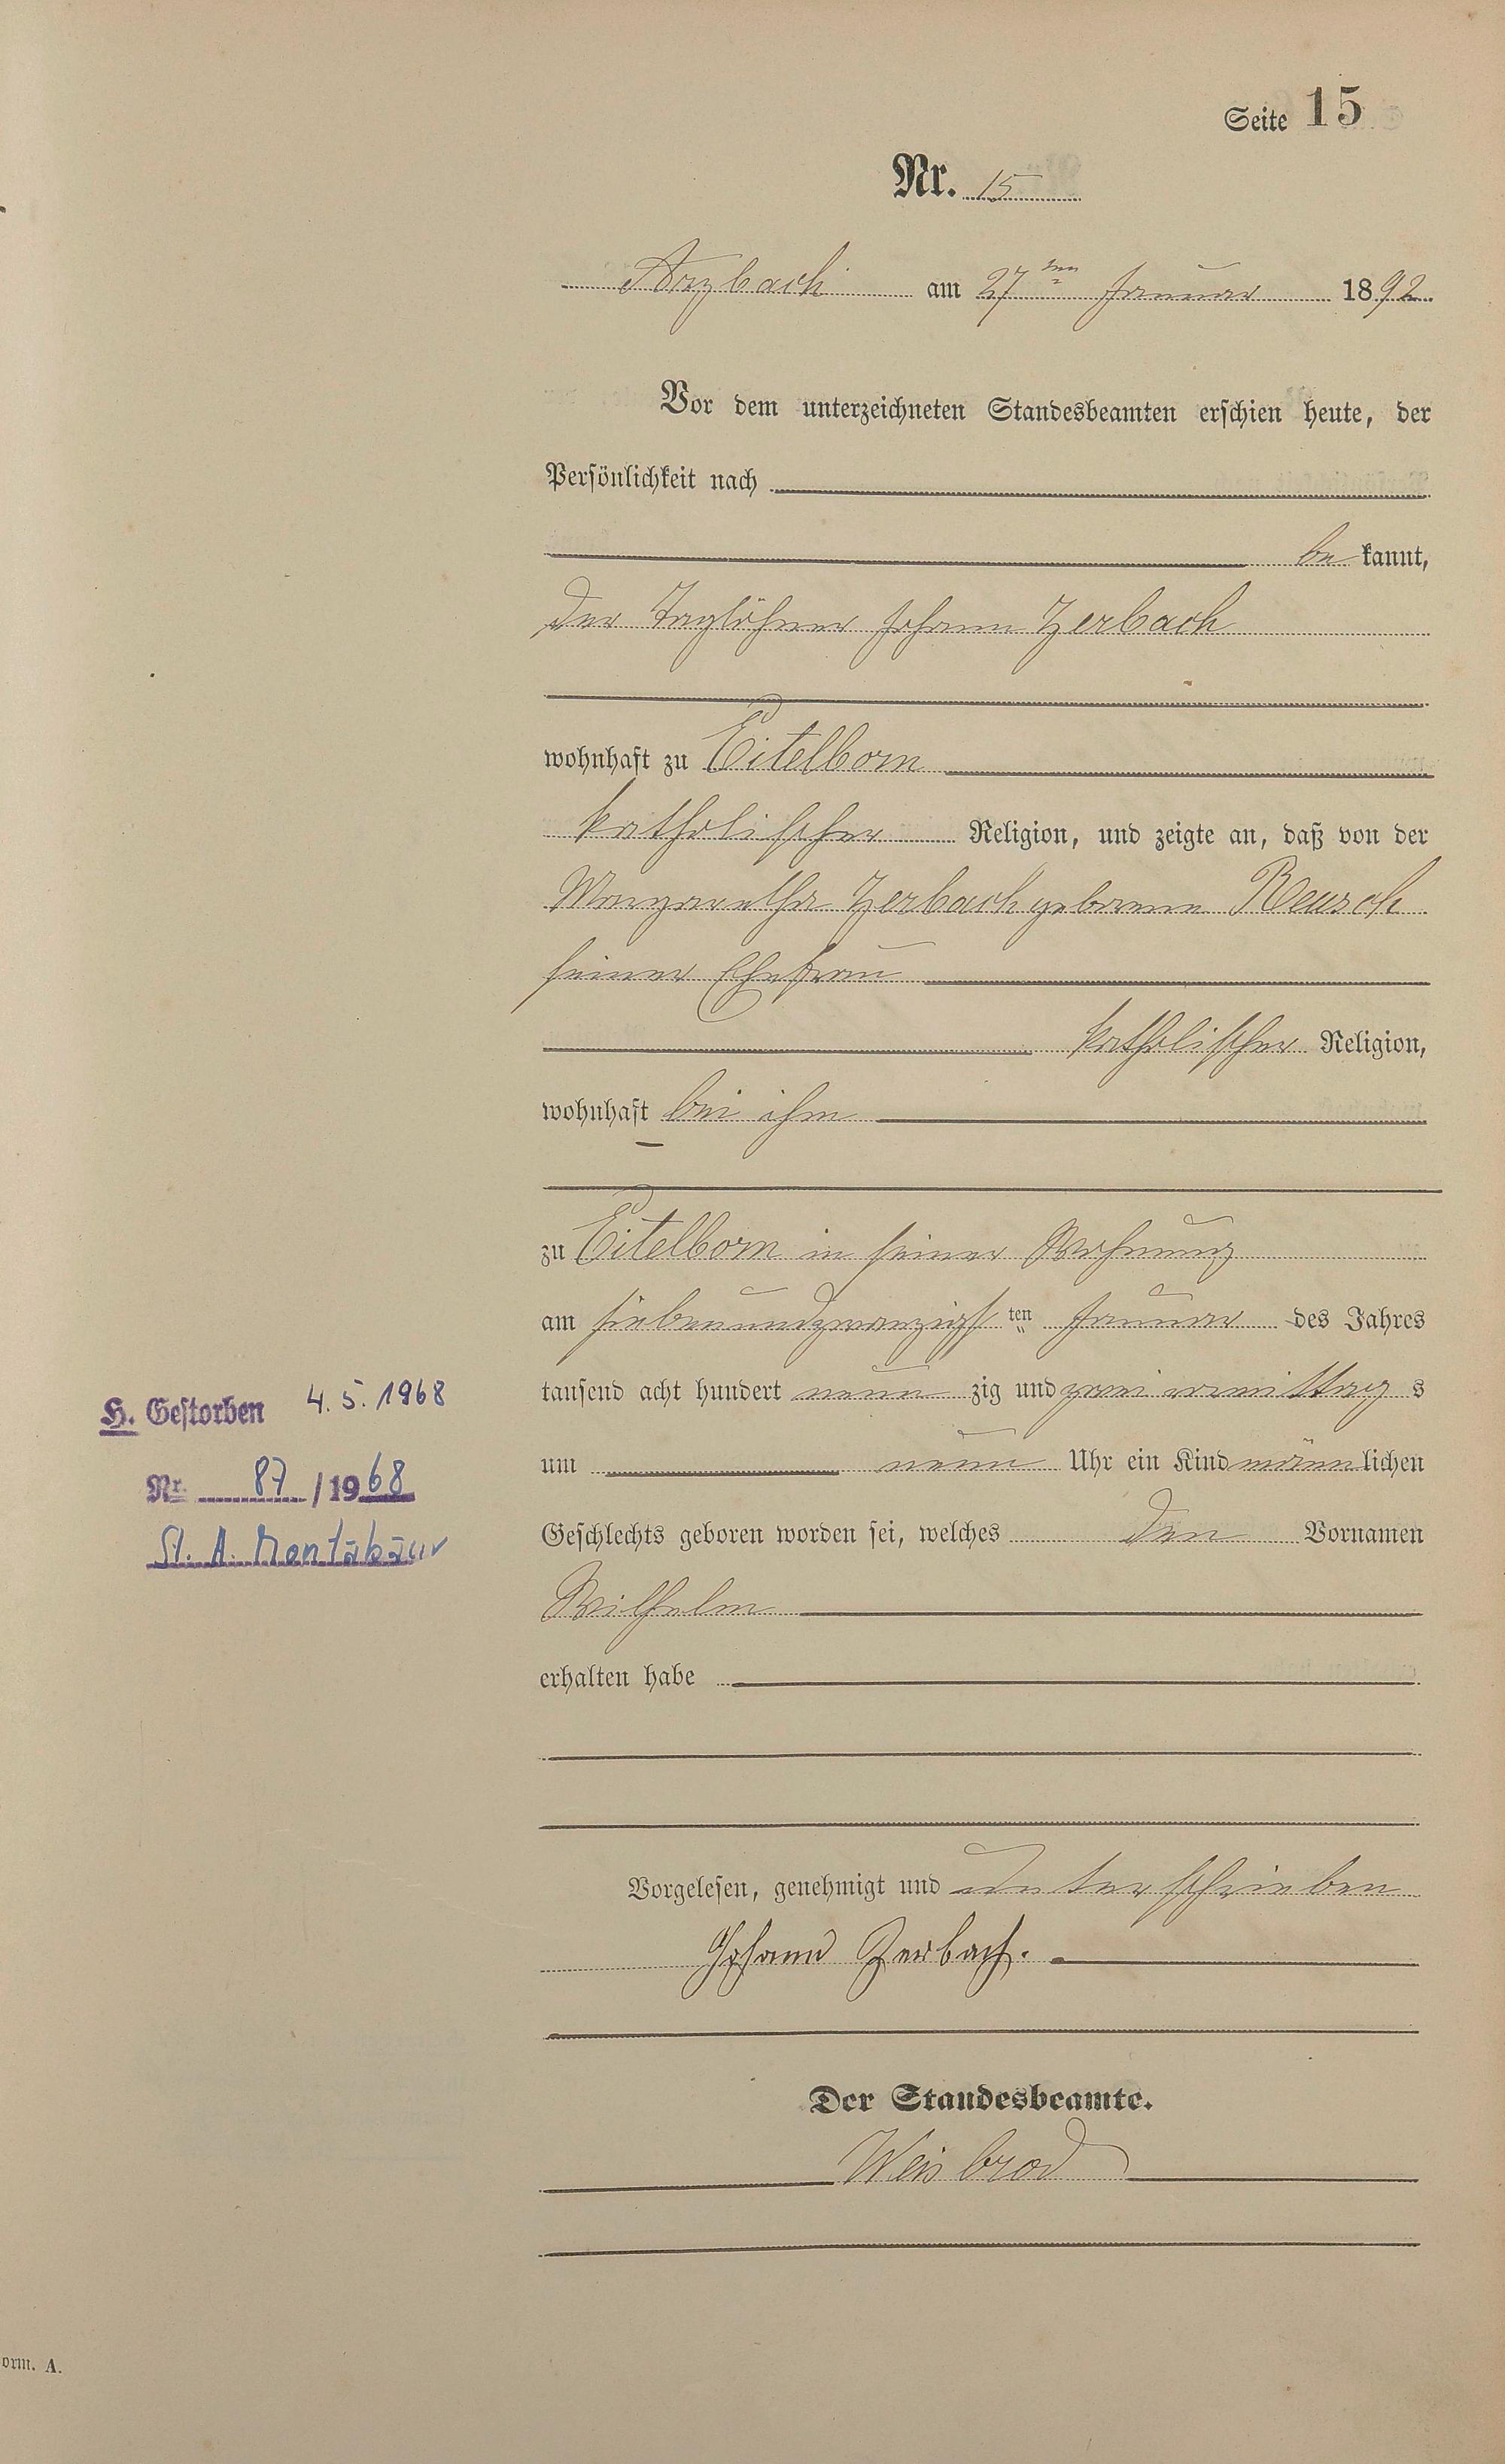 Seite 15
Nr. 15
Arzbach am 27ten Januar 1892
Vor dem unterzeichneten Standesbeamten erschien heute, der
Persönlichkeit nach
be kannt,
der Taglöhner Johann Zerbach
wohnhaft zu Eitelborn
katholischer Religion, und zeigte an, daß von der
Margaretha Zerbach geborene Reusch
seiner Ehefrau
katholischer Religion,
wohnhaft bei ihm
zu Eitelborn in seiner Wohnung
am siebenundzwanzigsten Januar des Jahres
tausend acht hundert neun zig und zwei vormittag s
um neun Uhr ein Kind männlichen
Geschlechts geboren worden sei, welches den Vornamen
Wilhelm
erhalten habe
H. Gestorben 4.5.1968
Nr. 87/1968
St. A. Montabaur
Vorgelesen, genehmigt und unterschrieben
Johann Zerbach.
Der Standesbeamte.
Weisbrod
orm. A.